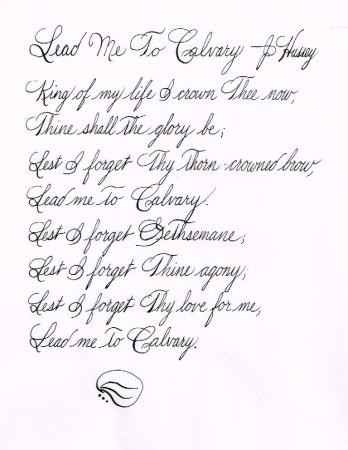 Lead Me To Calvary - J Hussey
King of my life I crown Thee now,
Thine shall the glory be;
Lest I forget Thy Thorn-crowned brow,
Lead me To Calvary.
Lest I forget Gethsemane;
Lest I forget Thine agony;
Lest I forget Thy love for me,
Lead me To Calvary.